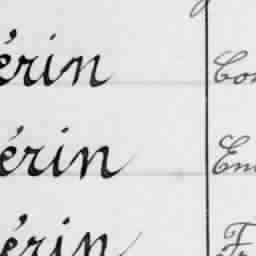 érin Con
érin Em
érin Fr